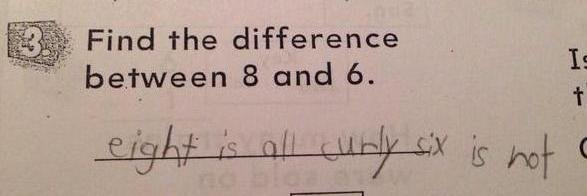 3. Find the difference
between 8 and 6.
eight is all curly six is not